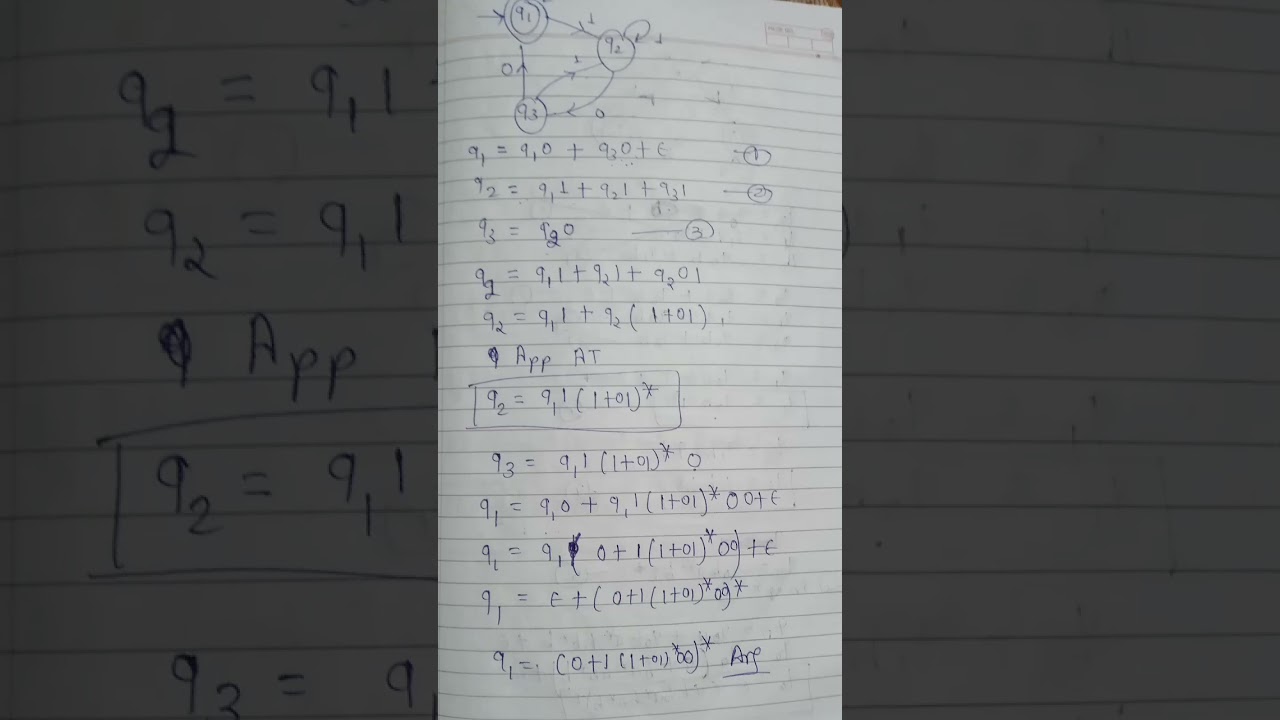 q₁
1
q₂
1
0
1
q₃
0
q₁ = q₁0 + q₃0 + ε ①
q₂ = q₁1 + q₂1 + q₃1 ②
q₃ = q₂0 ③
q₂ = q₁1 + q₂1 + q₂01
q₂ = q₁1 + q₂(1+01)
App AT
q₂ = q₁1(1+01)*
q₃ = q₁1(1+01)*0
q₁ = q₁0 + q₁1(1+01)*00+ε
q₁ = q₁(0+1(1+01)*00)+ε
q₁ = ε+(0+1(1+01)*00)*
q₁ = (0+1(1+01)*00)* Ans